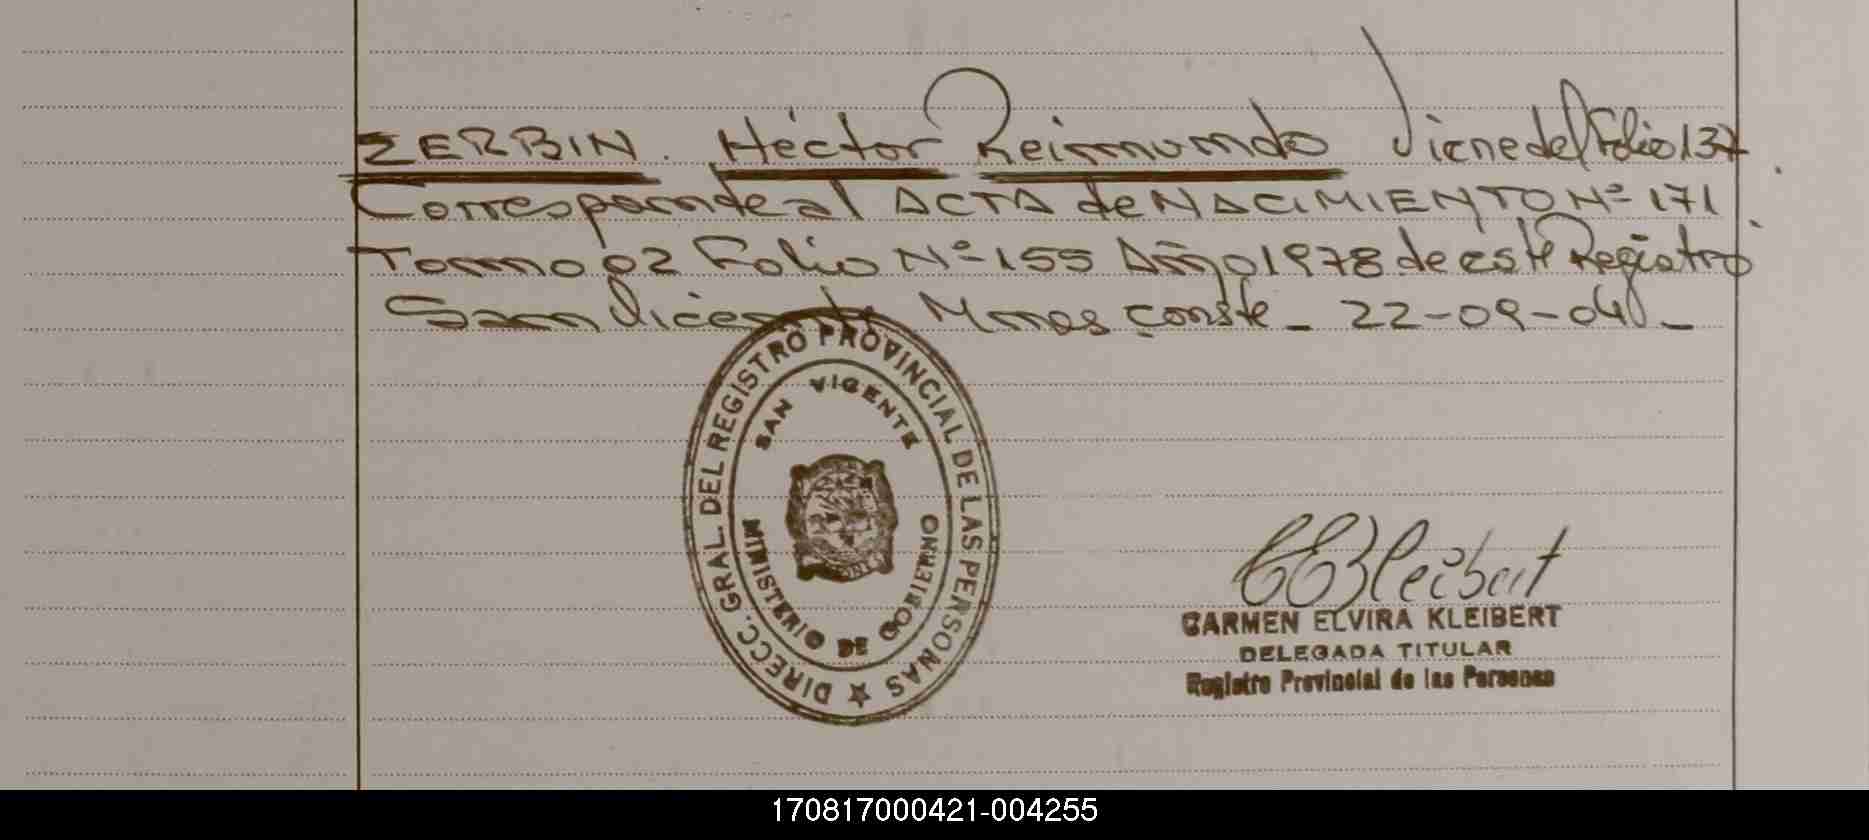 ZERBIN. Héctor Reimundo Viene del Folio 137
Corresponde al ACTA de NACIMIENTO Nº 171
Tomo 02 Folio Nº 155 Año 1978 de este Registro
San Vicente Mnes conste - 22-09-04 -
DIRECC. GRAL. DEL REGISTRO PROVINCIAL DE LAS PERSONAS
SAN VICENTE
MINISTERIO DE GOBIERNO
CEKleibert
CARMEN ELVIRA KLEIBERT
DELEGADA TITULAR
Registro Provincial de las Personas
170817000421-004255